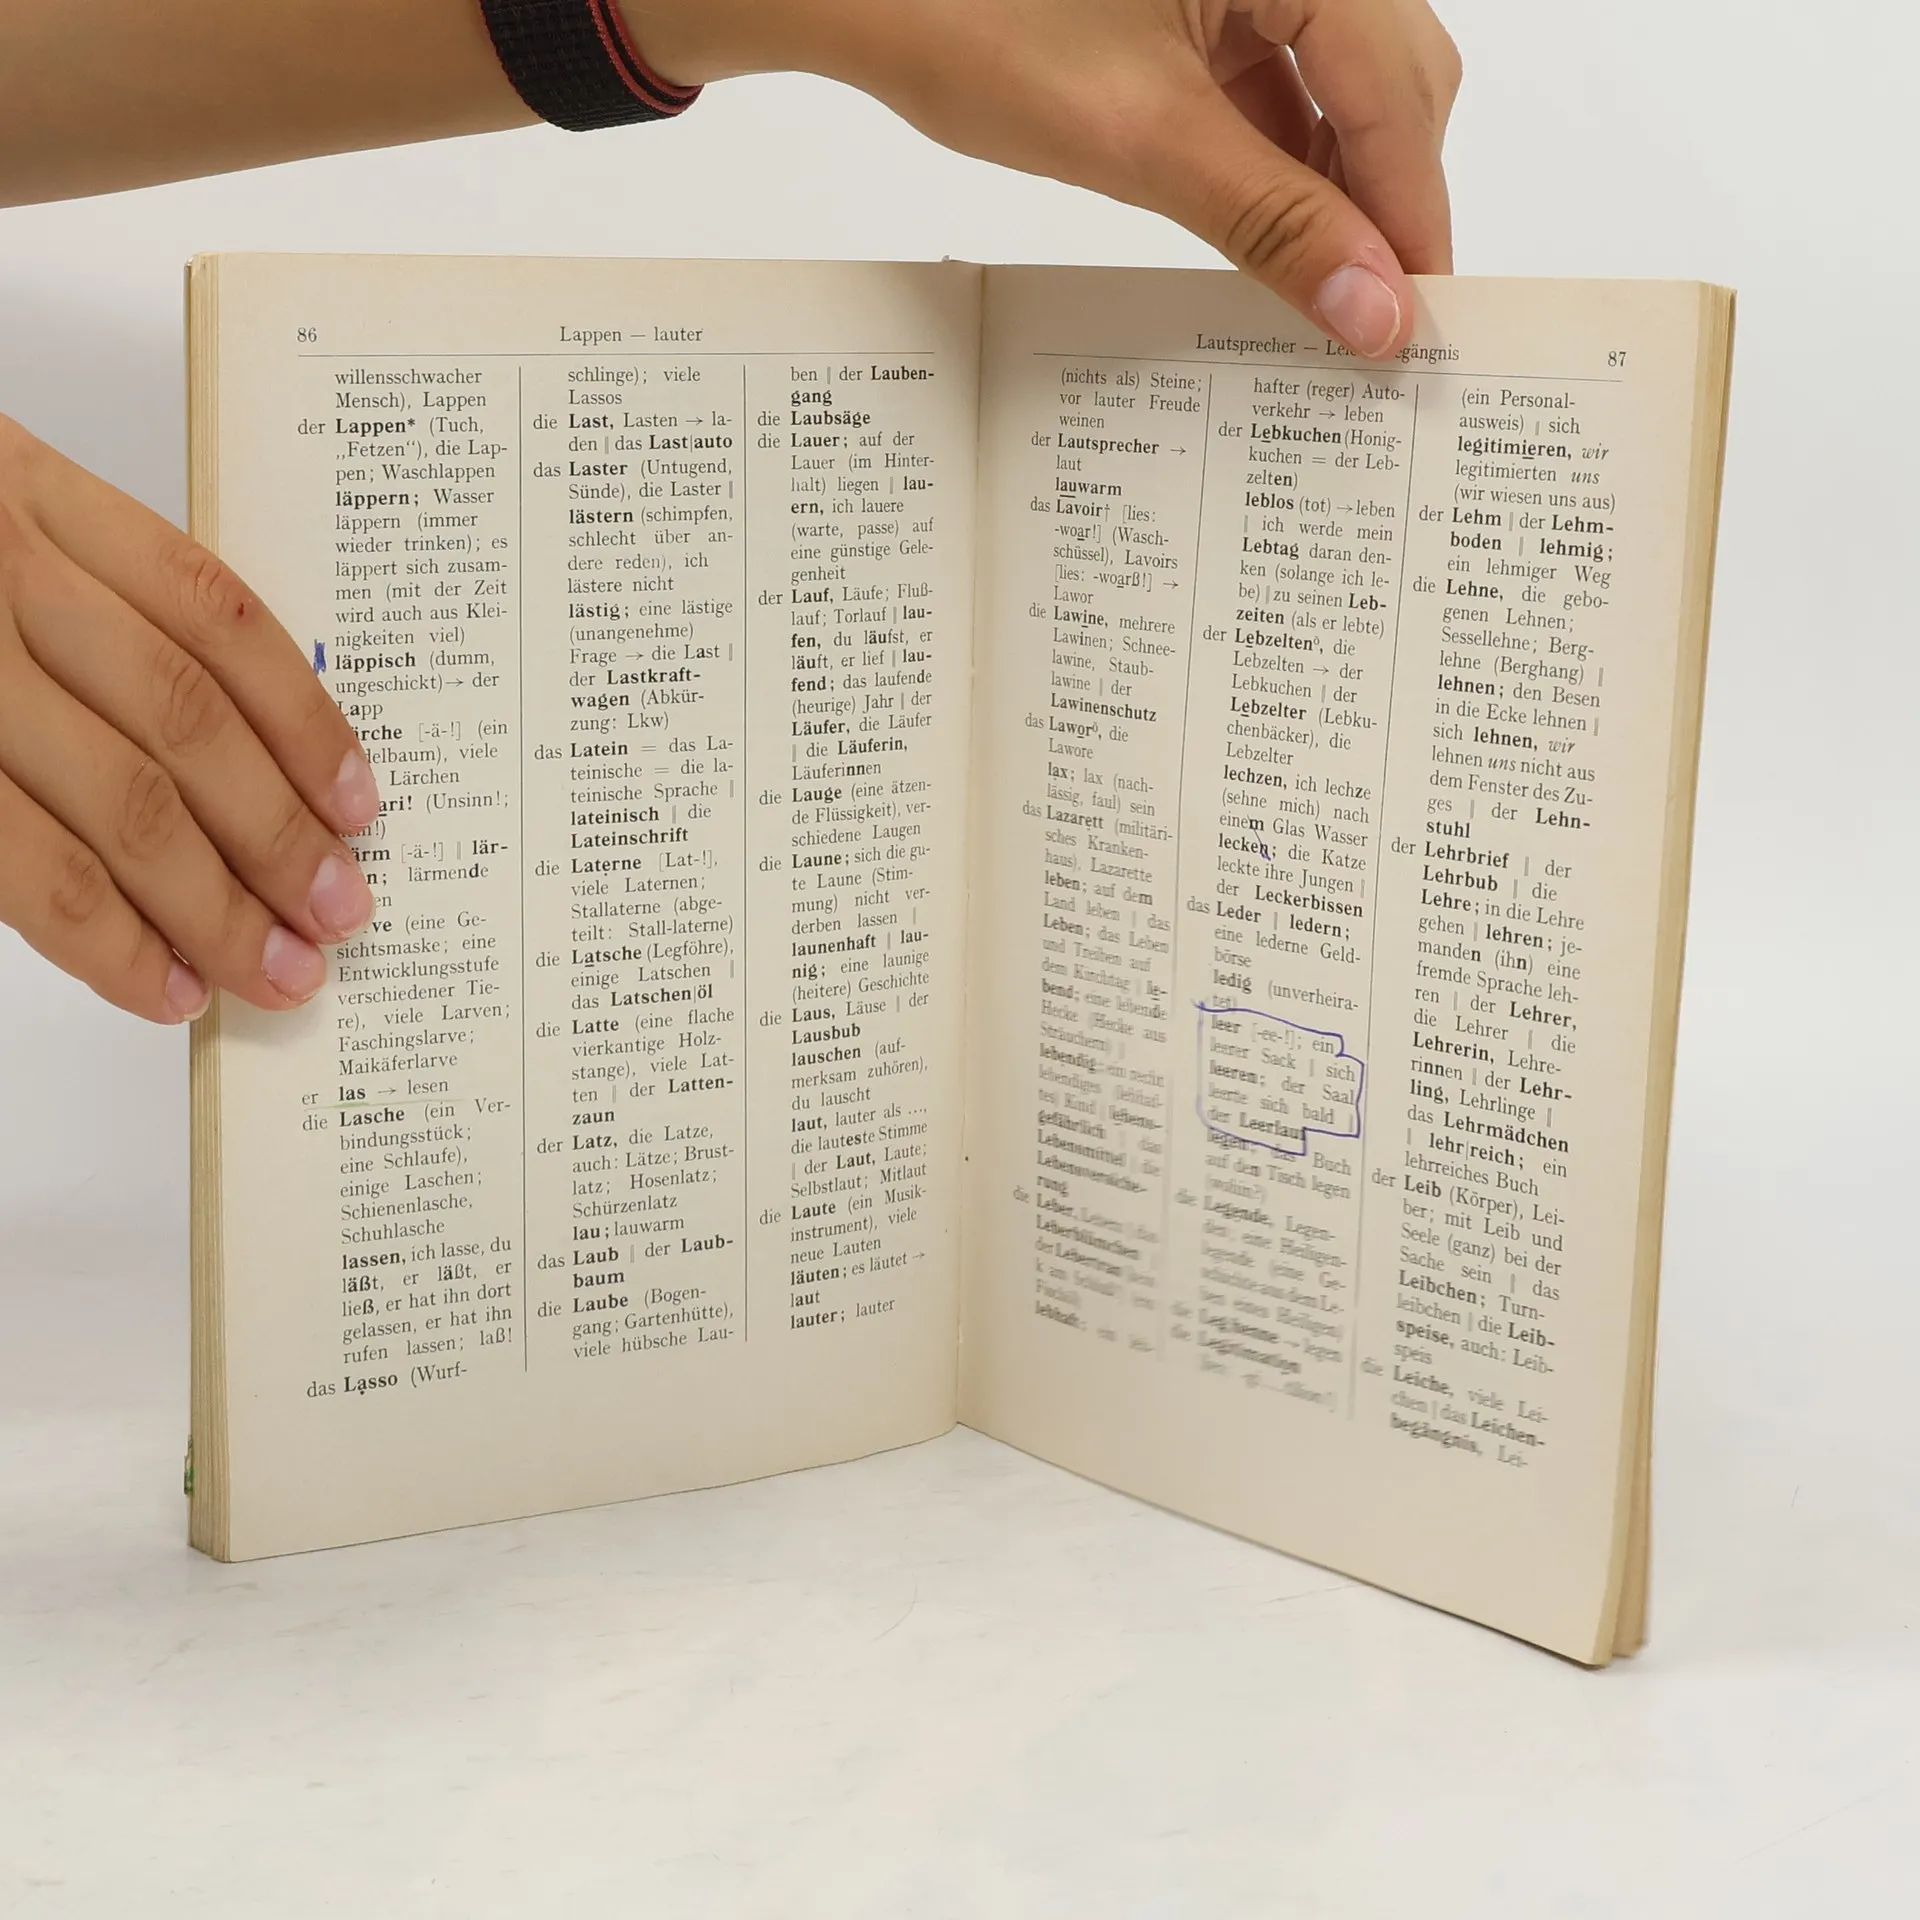 86
Lappen — lauter
willensschwacher
Mensch), Lappen
der Lappen* (Tuch,
„Fetzen“), die Lap-
pen; Waschlappen
läppern; Wasser
läppern (immer
wieder trinken); es
läppert sich zusam-
men (mit der Zeit
wird auch aus Klei-
nigkeiten viel)
läppisch (dumm,
ungeschickt)→ der
Lapp
ärche [-ä-!] (ein
delbaum), viele
Lärchen
ari! (Unsinn!;
ärm [-ä-!] ‖ lär-
n; lärmende
en
ve (eine Ge-
sichtsmaske; eine
Entwicklungsstufe
verschiedener Tie-
re), viele Larven;
Faschingslarve;
Maikäferlarve
er las → lesen
die Lasche (ein Ver-
bindungsstück;
eine Schlaufe),
einige Laschen;
Schienenlasche,
Schuhlasche
lassen, ich lasse, du
läßt, er läßt, er
ließ, er hat ihn dort
gelassen, er hat ihn
rufen lassen; laß!
das Lasso (Wurf-
schlinge); viele
Lassos
die Last, Lasten → la-
den ‖ das Last|auto
das Laster (Untugend,
Sünde), die Laster ‖
lästern (schimpfen,
schlecht über an-
dere reden), ich
lästere nicht
lästig; eine lästige
(unangenehme)
Frage → die Last ‖
der Lastkraft-
wagen (Abkür-
zung: Lkw)
das Latein = das La-
teinische = die la-
teinische Sprache ‖
lateinisch ‖ die
Lateinschrift
die Laterne [Lat-!],
viele Laternen;
Stallaterne (abge-
teilt: Stall-laterne)
die Latsche (Legföhre),
einige Latschen ‖
das Latschen|öl
die Latte (eine flache
vierkantige Holz-
stange), viele Lat-
ten ‖ der Latten-
zaun
der Latz, die Latze,
auch: Lätze; Brust-
latz; Hosenlatz;
Schürzenlatz
lau; lauwarm
das Laub ‖ der Laub-
baum
die Laube (Bogen-
gang; Gartenhütte),
viele hübsche Lau-
ben ‖ der Lauben-
gang
die Laubsäge
die Lauer; auf der
Lauer (im Hinter-
halt) liegen ‖ lau-
ern, ich lauere
(warte, passe) auf
eine günstige Gele-
genheit
der Lauf, Läufe; Fluß-
lauf; Torlauf ‖ lau-
fen, du läufst, er
läuft, er lief ‖ lau-
fend; das laufende
(heurige) Jahr ‖ der
Läufer, die Läufer
‖ die Läuferin,
Läuferinnen
die Lauge (eine ätzen-
de Flüssigkeit), ver-
schiedene Laugen
die Laune; sich die gu-
te Laune (Stim-
mung) nicht ver-
derben lassen ‖
launenhaft ‖ lau-
nig; eine launige
(heitere) Geschichte
die Laus, Läuse ‖ der
Lausbub
lauschen (auf-
merksam zuhören),
du lauscht
laut, lauter als ...,
die lauteste Stimme
‖ der Laut, Laute;
Selbstlaut; Mitlaut
die Laute (ein Musik-
instrument), viele
neue Lauten
läuten; es läutet →
laut
lauter; lauter
Lautsprecher — Lei egängnis
87
(nichts als) Steine;
vor lauter Freude
weinen
der Lautsprecher →
laut
lauwarm
das Lavoir† [lies:
-woar!] (Wasch-
schüssel), Lavoirs
[lies: -woarß!] →
Lawor
die Lawine, mehrere
Lawinen; Schnee-
lawine, Staub-
lawine ‖ der
Lawinenschutz
das Laworö, die
Lawore
lax; lax (nach-
lässig, faul) sein
das Lazarett (militäri-
sches Kranken-
haus), Lazarette
leben; auf dem
Land leben ‖ das
Leben; das Leben
und Treiben auf
dem Kirchtag ‖ le-
bend; eine lebende
Hecke (Hecke aus
Sträuchern) ‖
lebendig; ein recht
lebendiges (lebhaf-
tes) Kind ‖ lebens-
gefährlich ‖ das
Lebensmittel ‖ die
Lebensversiche-
rung
die Leber, Lebern ‖ das
Leberblümchen ‖
der Lebertran
lebhaft; ein leb-
hafter (reger) Auto-
verkehr → leben
der Lebkuchen (Honig-
kuchen = der Leb-
zelten)
leblos (tot) →leben
‖ ich werde mein
Lebtag daran den-
ken (solange ich le-
be) ‖ zu seinen Leb-
zeiten (als er lebte)
der Lebzeltenö, die
Lebzelten → der
Lebkuchen ‖ der
Lebzelter (Lebku-
chenbäcker), die
Lebzelter
lechzen, ich lechze
(sehne mich) nach
einem Glas Wasser
lecken; die Katze
leckte ihre Jungen ‖
der Leckerbissen
das Leder ‖ ledern;
eine lederne Geld-
börse
ledig (unverheira-
tet)
leer [-ee-!]; ein
leerer Sack ‖ sich
leeren; der Saal
leerte sich bald ‖
der Leerlauf
legen; das Buch
auf den Tisch legen
(wohin?)
die Legende, Legen-
den; eine Heiligen-
legende (eine Ge-
schichte aus dem Le-
ben eines Heiligen)
die Leghenne → legen
die Legitimation
(ein Personal-
ausweis) ‖ sich
legitimieren, wir
legitimierten uns
(wir wiesen uns aus)
der Lehm ‖ der Lehm-
boden ‖ lehmig;
ein lehmiger Weg
die Lehne, die gebo-
genen Lehnen;
Sessellehne; Berg-
lehne (Berghang) ‖
lehnen; den Besen
in die Ecke lehnen ‖
sich lehnen, wir
lehnen uns nicht aus
dem Fenster des Zu-
ges ‖ der Lehn-
stuhl
der Lehrbrief ‖ der
Lehrbub ‖ die
Lehre; in die Lehre
gehen ‖ lehren; je-
manden (ihn) eine
fremde Sprache leh-
ren ‖ der Lehrer,
die Lehrer ‖ die
Lehrerin, Lehre-
rinnen ‖ der Lehr-
ling, Lehrlinge ‖
das Lehrmädchen
‖ lehr|reich; ein
lehrreiches Buch
der Leib (Körper), Lei-
ber; mit Leib und
Seele (ganz) bei der
Sache sein ‖ das
Leibchen; Turn-
leibchen ‖ die Leib-
speise, auch: Leib-
speis
die Leiche, viele Lei-
chen ‖ das Leichen-
begängnis, Lei-